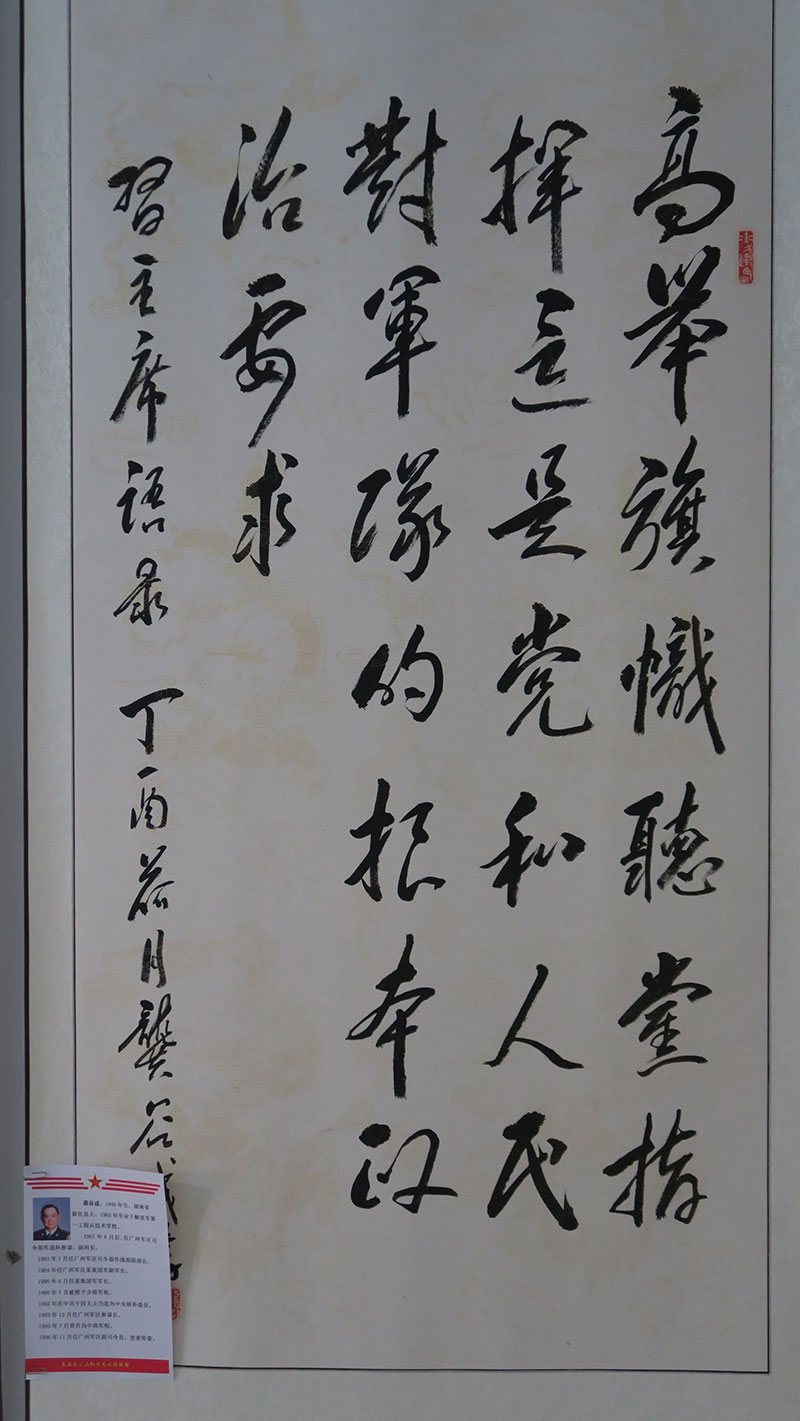 高舉旗幟聽黨指
揮这是党和人民
對軍隊的根本政
治要求
習主席语录 丁酉荷月龔谷成書
龚谷成，1940年生，湖南省
新化县人。1963年毕业于解放军第
一工程兵技术学校。
1967年6月后，任广州军区司
令部作战科参谋、副科长。
1983年1月任广州军区司令部作战部副部长。
1984年任广州军区某集团军副军长。
1990年6月任某集团军军长。
1990年7月被授予少将军衔。
1992年在中共十四大上当选为中央候补委员。
1993年12月任广州军区参谋长。
1995年7月晋升为中将军衔。
1996年11月任广州军区副司令员、党委常委。